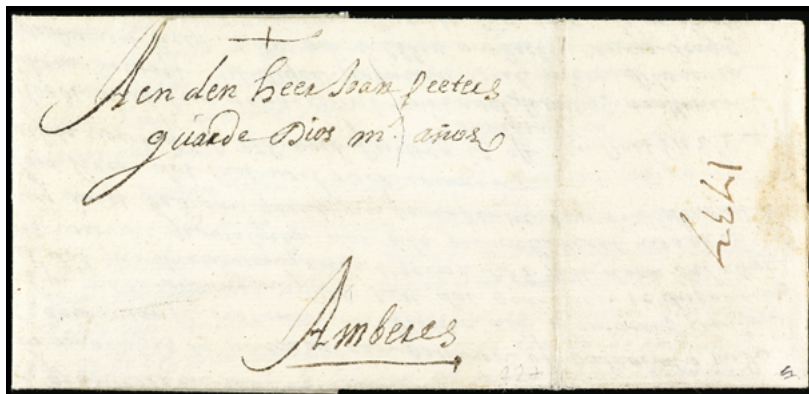 Aen den heer Joan Peeters
guarde Dios m.s años
Amberes
1737
227